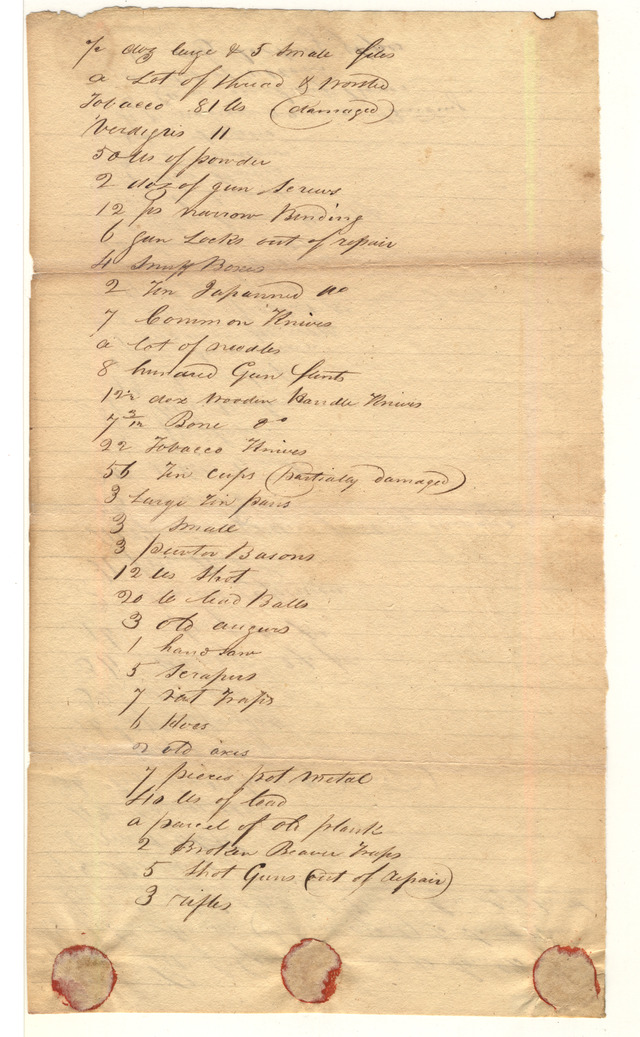 ½ doz large & 5 Small files
a Lot of thread & worsted
Tobacco 81 lbs (damaged)
Verdigris 11
50 lbs of powder
2 doz of gun Screws
12 ps narrow Binding
6 gun Locks out of repair
4 Snuff Boxes
2 Tin Japanned do
7 Common Knives
a lot of needles
8 hundred Gun flints
1 doz Wooden Handle Knives
7 3/12 Bone do
22 Tobacco Knives
56 Tin Cups (partially damaged)
3 Large Tin pans
3 Small
3 pewter Basons
12 lbs Shot
20 lb lead Balls
3 old augurs
1 hand saw
5 Scrapers
7 rat Traps
6 Hoes
2 old axes
7 pieces pot metal
40 lbs of lead
a parcel of old plank
2 Broken Beaver Traps
5 Shot Guns (out of repair)
3 rifles